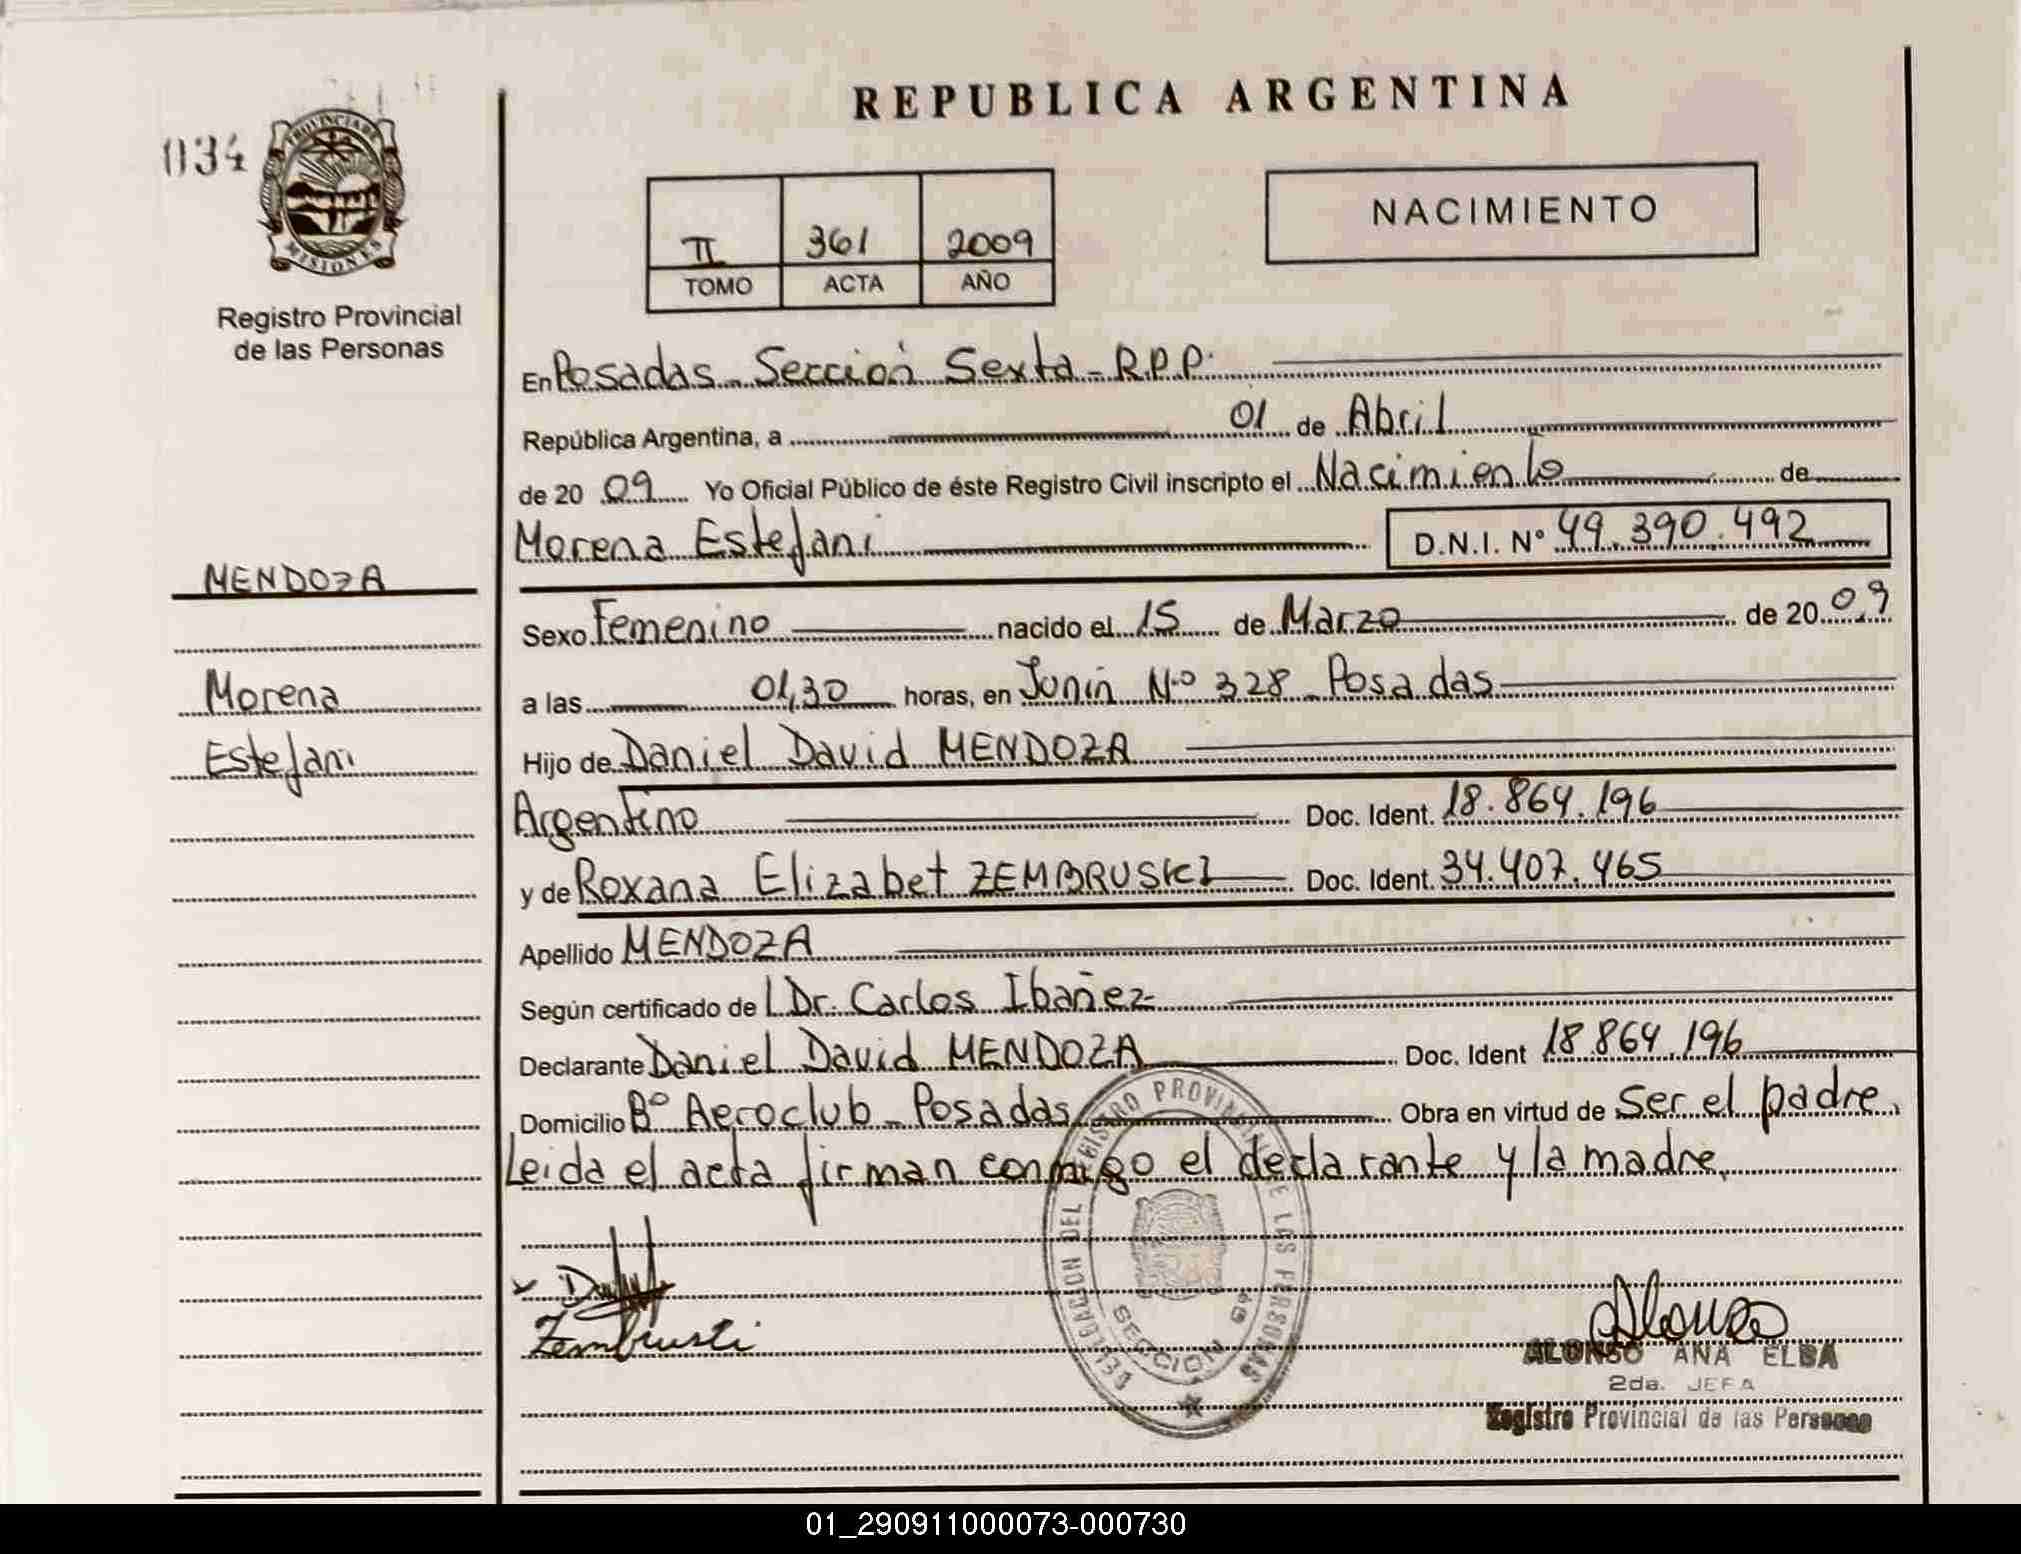 REPUBLICA ARGENTINA
034
PROVINCIA DE
MISIONES
Registro Provincial
de las Personas
NACIMIENTO
II 361 2009
TOMO ACTA AÑO
En Posadas - Sección Sexta - R.P.P.
República Argentina, a 01 de Abril
de 20 09 Yo Oficial Público de éste Registro Civil inscripto el Nacimiento de
Morena Estefani D.N.I. Nº 49.390.492
Sexo Femenino nacido el 15 de Marzo de 20 09
a las 01,30 horas, en Junín Nº 328 - Posadas
Hijo de Daniel David MENDOZA
Argentino Doc. Ident. 18.864.196
y de Roxana Elizabet ZEMBRUSKI Doc. Ident. 34.407.465
Apellido MENDOZA
Según certificado de Dr. Carlos Ibañez
Declarante Daniel David MENDOZA Doc. Ident 18.864.196
Domicilio Bº Aeroclub - Posadas Obra en virtud de Ser el padre,
Leida el acta firman conmigo el declarante y la madre,
MENDOZA
Morena
Estefani
Zembruski
DELEGACION DEL REGISTRO PROVINCIAL DE LAS PERSONAS
SECCION 6ª
Alonso
ALONSO ANA ELBA
2da. JEFA
Registro Provincial de las Personas
01_290911000073-000730